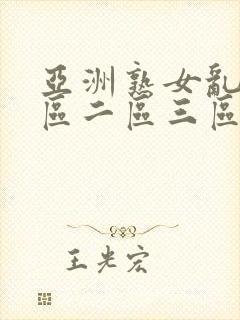 亞洲熟女亂
區二區三區
王光宏